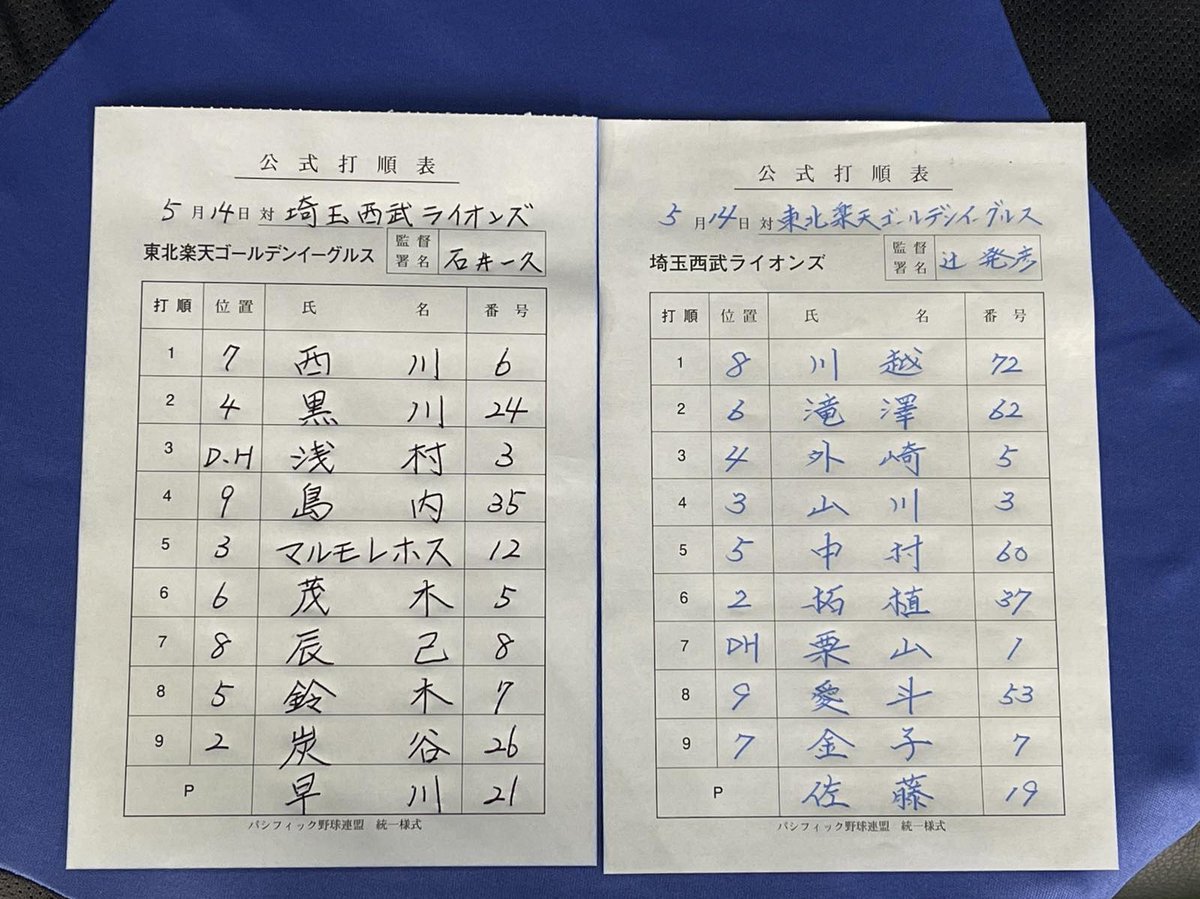 公式打順表
5月14日 対 埼玉西武ライオンズ
東北楽天ゴールデンイーグルス 監督署名 石井一久
打順 位置 氏名 番号
1 7 西川 6
2 4 黒川 24
3 D.H 浅村 3
4 9 島内 35
5 3 マルモレホス 12
6 6 茂木 5
7 8 辰己 8
8 5 鈴木 7
9 2 炭谷 26
P 早川 21
パシフィック野球連盟 統一様式
公式打順表
5月14日 対 東北楽天ゴールデンイーグルス
埼玉西武ライオンズ 監督署名 辻発彦
打順 位置 氏名 番号
1 8 川越 72
2 6 滝澤 62
3 4 外崎 5
4 3 山川 3
5 5 中村 60
6 2 柘植 37
7 DH 栗山 1
8 9 愛斗 53
9 7 金子 7
P 佐藤 19
パシフィック野球連盟 統一様式